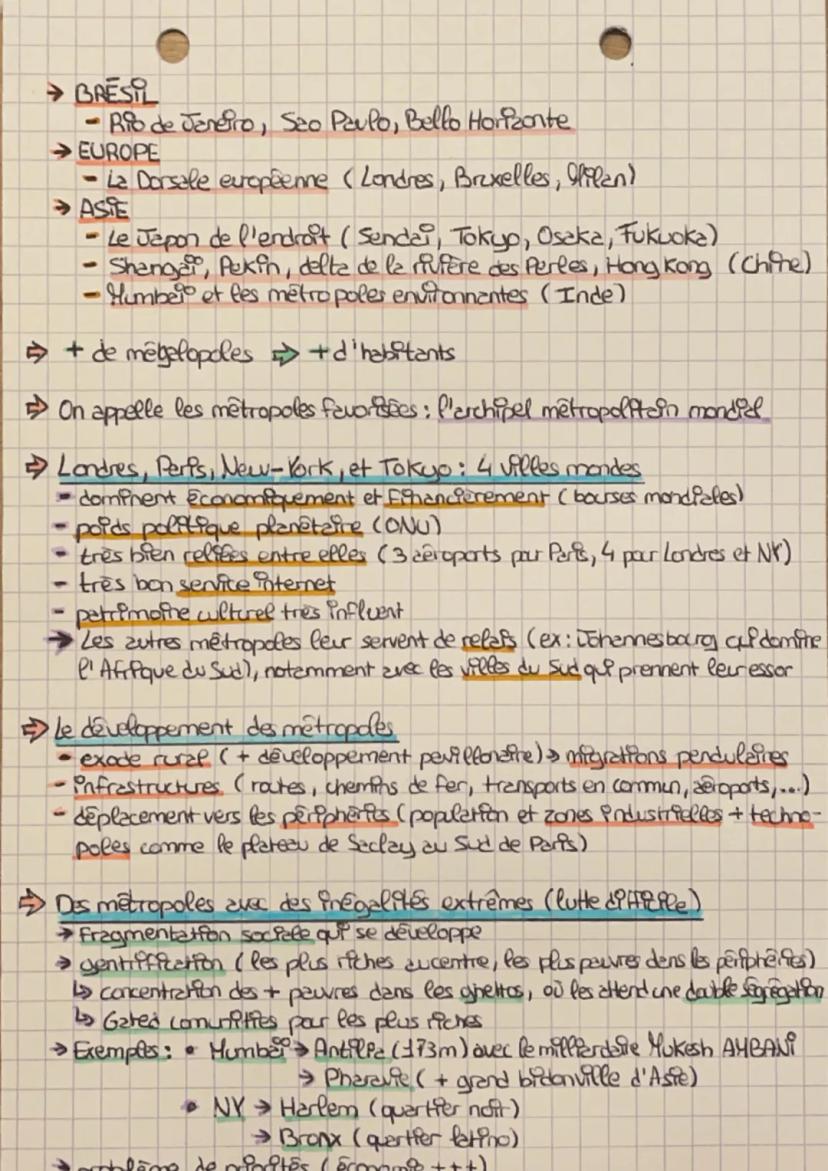 → BRÉSIL
- Rio de Janeiro, Sao Paulo, Bello Horizonte
→ EUROPE
- La Dorsale européenne (Londres, Bruxelles, Milan)
→ ASIE
- Le Japon de l'endroit (Sendai, Tokyo, Osaka, Fukuoka)
- Shangai, Pekin, delta de la rivière des Perles, Hong Kong (Chine)
- Mumbai et les métropoles environnantes (Inde)
⇨ + de mégalopoles ⇨ + d'habitants
⇨ On appelle les métropoles favorisées : l'archipel métropolitain mondial
⇨ Londres, Paris, New-York, et Tokyo : 4 villes mondes
- dominent économiquement et financièrement (bourses mondiales)
- poids politique planétaire (ONU)
- très bien reliées entre elles (3 aéroports pour Paris, 4 pour Londres et NY)
- très bon service internet
- patrimoine culturel très influent
→ Les autres métropoles leur servent de relais (ex : Johannesbourg qui domine
l'Afrique du Sud), notamment avec les villes du Sud qui prennent leur essor
⇨ Le développement des métropoles
- exode rural (+ développement pavillonaire) → migrations pendulaires
- infrastructures (routes, chemins de fer, transports en commun, aéroports, ...)
- déplacement vers les périphéries (population et zones industrielles + techno-
poles comme le plateau de Saclay au Sud de Paris)
⇨ Des métropoles avec des inégalités extrêmes (lutte difficile)
→ Fragmentation sociale qui se développe
→ gentrification (les plus riches au centre, les plus pauvres dans les périphéries)
↳ concentration des + pauvres dans les ghettos, où les attend une double ségrégation
↳ Gated comunities pour les plus riches
→ Exemples : • Mumbai → Antilia (173m) avec le milliardaire Mukesh AMBANI
→ Pharavie (+ grand bidonville d'Asie)
• NY → Harlem (quartier noir)
→ Bronx (quartier latino)
→ problème de priorités (économie +++)